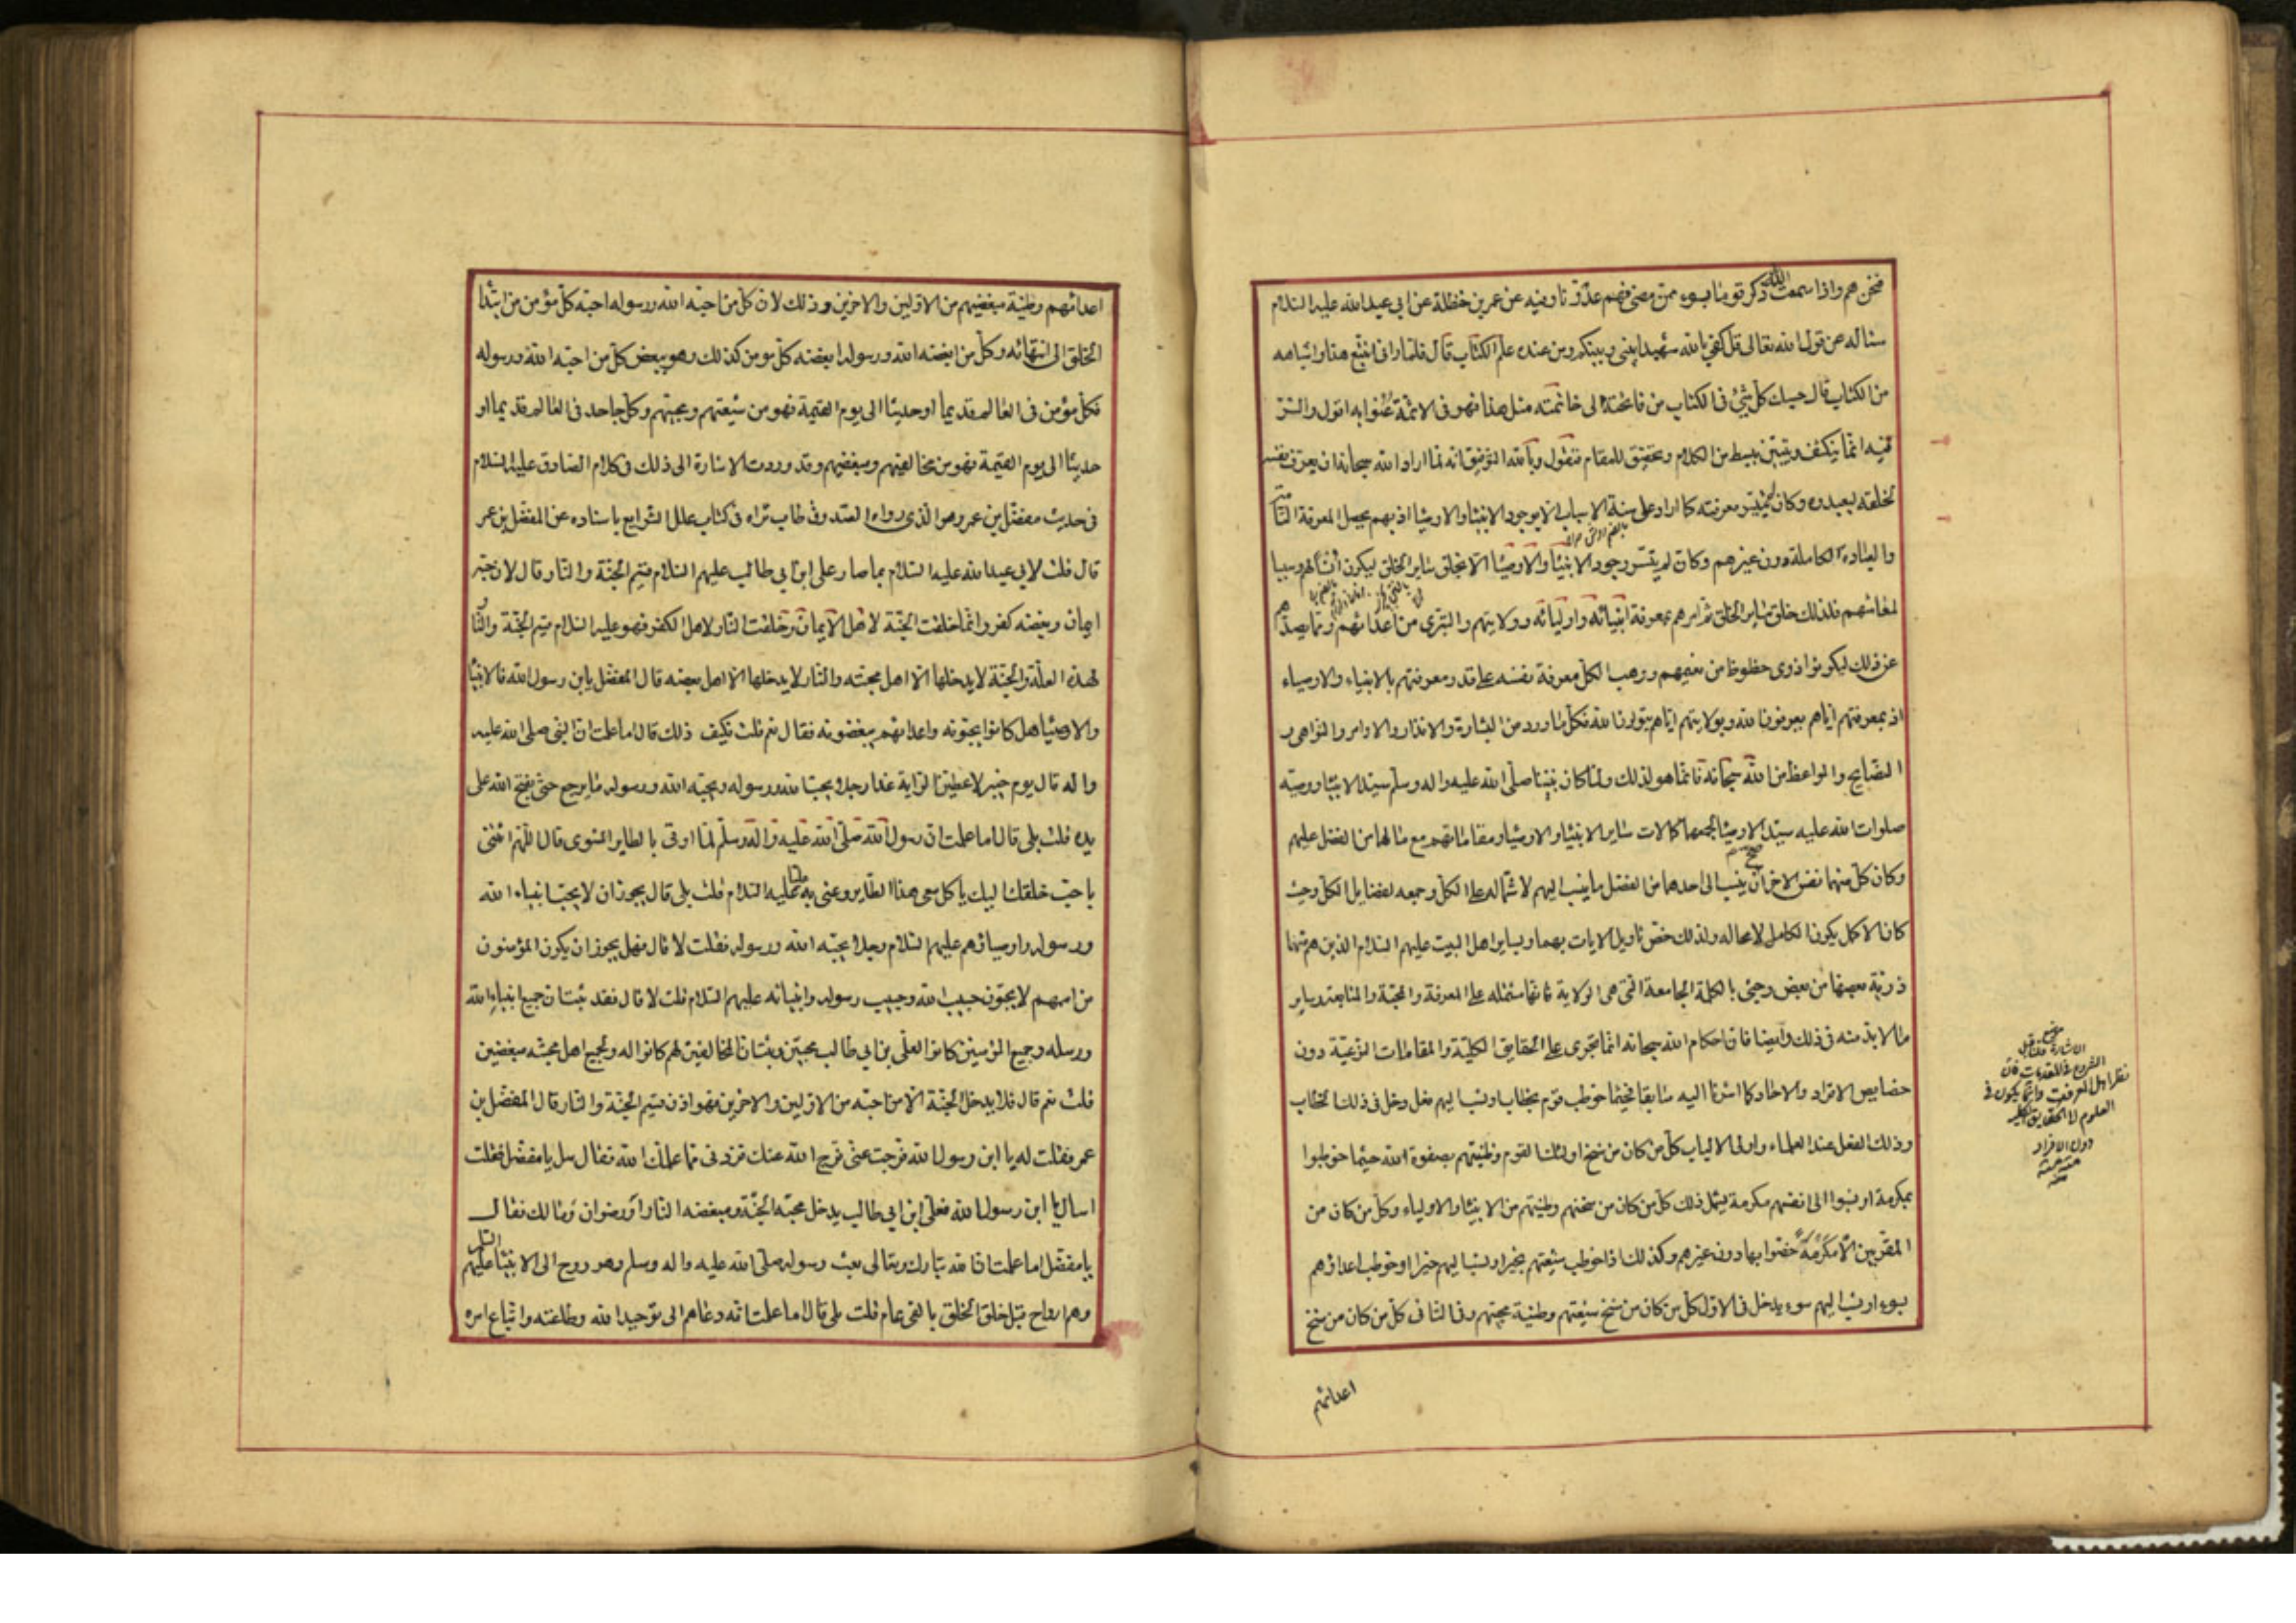 فنحن هم واذا سمعت الله ذكر قوما بسوء ممن مضى فهم عدونا وفيه عن عمر بن حنظلة عن ابي عبد الله عليه السلام
سئاله عن قول الله تعالى قل كفى بالله شهيدا بيني وبينكم ومن عنده علم الكتاب قال فلما راني اتتبع هذا واشباهه
من الكتاب قال حسبك كل شئ في الكتاب من فاتحته الى خاتمته مثل هذا فهو في الائمة عنوا به اقول والسر
فيه انما ينكشف ويتبين ببسط من الكلام وتحقيق للمقام فنقول وبالله التوفيق انه لما اراد الله سبحانه ان يعرف نفسه
لخلقه ليعبدوه وكان لم يتيسر معرفته كما اراد على سنة الاسباب الا بوجود الانبيا والاوصيا اذ بهم يحصل المعرفة التامة
والعبادة الكاملة دون غيرهم وكان لم يتيسر وجود الانبيا والاوصيا الا بخلق ساير الخلق ليكون انسا لهم وسببا
لمعاشهم فلذلك خلق ساير الخلق ثم امرهم بمعرفة انبيائه واوليائه وولايتهم والتبري من اعدائهم ومما يصدهم
عن ذلك ليكونوا ذوي حظوظ من نعيمهم ووهب الكل معرفة نفسه على قدر معرفتهم بالانبياء والاوصياء
اذ بمعرفتهم اياهم يعرفون الله وبولايتهم اياهم يتولون الله فكل ما ورد من البشارة والانذار والاوامر والنواهي و
النصايح والمواعظ من الله سبحانه فانما هو لذلك ولما كان نبينا صلى الله عليه واله وسلم سيد الانبيا ووصيه
صلوات الله عليه سيد الاوصيا لجمعهما كمالات ساير الانبيا والاوصيا ومقاماتهم مع ما لهما من الفضل عليهم
وكان كل منهما نفس الاخر صح ان ينسب الى احدهما من الفضل ما ينسب اليهم لاشتماله على الكل وجمعه لفضايل الكل وحيث
كان الاكمل يكون الكامل لا محالة ولذلك خص تاويل الايات بهما وبساير اهل البيت عليهم السلام الذين هم منهما
ذرية بعضها من بعض وجئ بالكلمة الجامعة التي هي الولاية فانها مشتملة على المعرفة والمحبة والمتابعة وساير
ما لا بد منه في ذلك وايضا فان احكام الله سبحانه انما تجري على الحقايق الكلية والمقامات النوعية دون
خصايص الافراد والاحاد كما اشرنا اليه سابقا فحيثما خوطب قوم بخطاب او نسب اليهم فعل دخل في ذلك الخطاب
وذلك الفعل عند العلماء واولي الالباب كل من كان من سنخ اولئك القوم وطينتهم فصفوة الله حيثما خوطبوا
بمكرمة او نسبوا الى انفسهم مكرمة يشمل ذلك كل من كان من سنخهم وطينتهم من الانبيا والاولياء وكل من كان من
المقربين الا مكرمة خصوا بها دون غيرهم وكذلك اذا خوطب شيعتهم بخير او نسب اليهم خير او خوطب اعداؤهم
بسوء او نسب اليهم سوء يدخل في الاول كل من كان من سنخ شيعتهم وطينة محبتهم وفي الثاني كل من كان من سنخ
اعدائهم
الاشارة
الشروع في المقدمات فان
نظر اهل المعرفة وانما يكون في
العلوم الى الحقايق الكلية
دون الافراد
منه
اعدائهم وطينة مبغضيهم من الاولين والاخرين وذلك لان كل من احبه الله ورسوله احبه كل مؤمن من ابتدا
الخلق الى انتهائه وكل من ابغضه الله ورسوله ابغضه كل مومن كذلك وهو يبغض كل من احبه الله ورسوله
فكل مؤمن في العالم قديما او حديثا الى يوم القيمة فهو من شيعتهم ومحبيهم وكل جاحد في العالم قديما او
حديثا الى يوم القيمة فهو من مخالفيهم ومبغضيهم وقد وردت الاشارة الى ذلك في كلام الصادق عليه السلام
في حديث مفضل بن عمر وهو الذي رواه الصدوق طاب ثراه في كتاب علل الشرايع باسناده عن المفضل بن عمر
قال قلت لابي عبد الله عليه السلام بما صار علي ابن ابي طالب عليهم السلام قسيم الجنة والنار قال لان حبه
ايمان وبغضه كفر وانما خلقت الجنة لاهل الايمان وخلقت النار لاهل الكفر فهو عليه السلام قسيم الجنة والنار
لهذه العلة والجنة لا يدخلها الا اهل محبته والنار لا يدخلها الا اهل بغضه قال المفضل يابن رسول الله فالانبيا
والاوصيا هل كانوا يحبونه واعدائهم يبغضونه فقال نعم قلت فكيف ذلك قال اما علمت ان النبي صلى الله عليه
واله قال يوم خيبر لاعطين الراية غدا رجلا يحب الله ورسوله ويحبه الله ورسوله ما يرجع حتى يفتح الله على
يده قلت بلى قال اما علمت ان رسول الله صلى الله عليه واله وسلم لما اوتى بالطاير المشوى قال اللهم ائتني
باحب خلقك اليك ياكل معي هذا الطاير وعنى به عليا عليه السلام قلت بلى قال يجوز ان لا يحب انبياء الله
ورسوله واوصياؤهم عليهم السلام رجلا يحبه الله ورسوله فقلت لا قال فهل يجوز ان يكون المؤمنون
من اممهم لا يحبون حبيب الله وحبيب رسوله وانبيائه عليهم السلام قلت لا قال فقد ثبت ان جميع انبياء الله
ورسله وجميع المؤمنين كانوا لعلي بن ابي طالب محبين وثبت ان المخالفين لهم كانوا له ولجميع اهل محبته مبغضين
قلت نعم قال فلا يدخل الجنة الا من احبه من الاولين والاخرين فهو اذن قسيم الجنة والنار قال المفضل بن
عمر فقلت له يا ابن رسول الله فرجت عني فرج الله عنك فزدني مما علمك الله فقال سل يا مفضل فقلت
اسال يا ابن رسول الله فعلي ابن ابي طالب يدخل محبه الجنة ومبغضه النار او رضوان ومالك فقال
يا مفضل اما علمت ان الله تبارك وتعالى بعث رسوله صلى الله عليه واله وسلم وهو روح الى الانبيا عليهم السلام
وهم ارواح قبل خلق الخلق بالفي عام قلت بلى قال اما علمت انه دعاهم الى توحيد الله وطاعته واتباع امره